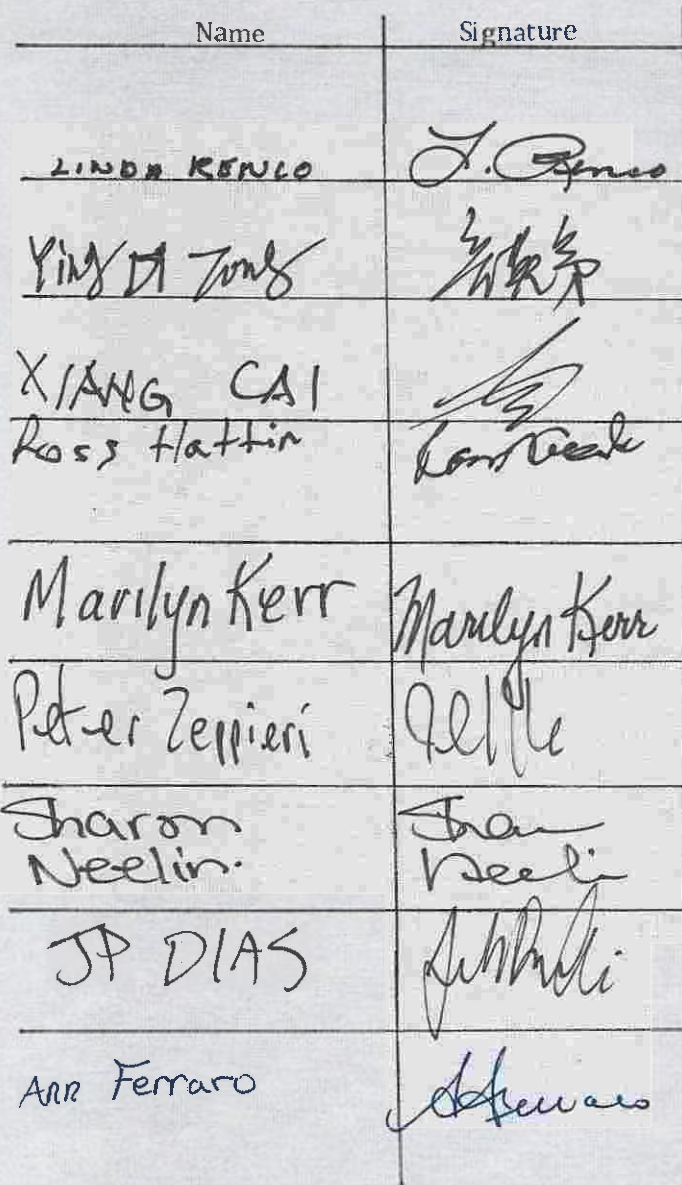 Name Signature
LINDA RENCO L. Renco
Ying DI Tong
XIANG CAI
Ross Hattin
Marilyn Kerr Marilyn Kerr
Peter Zeppieri
Sharon
Neelin.
JP DIAS
Ann Ferraro A Ferraro